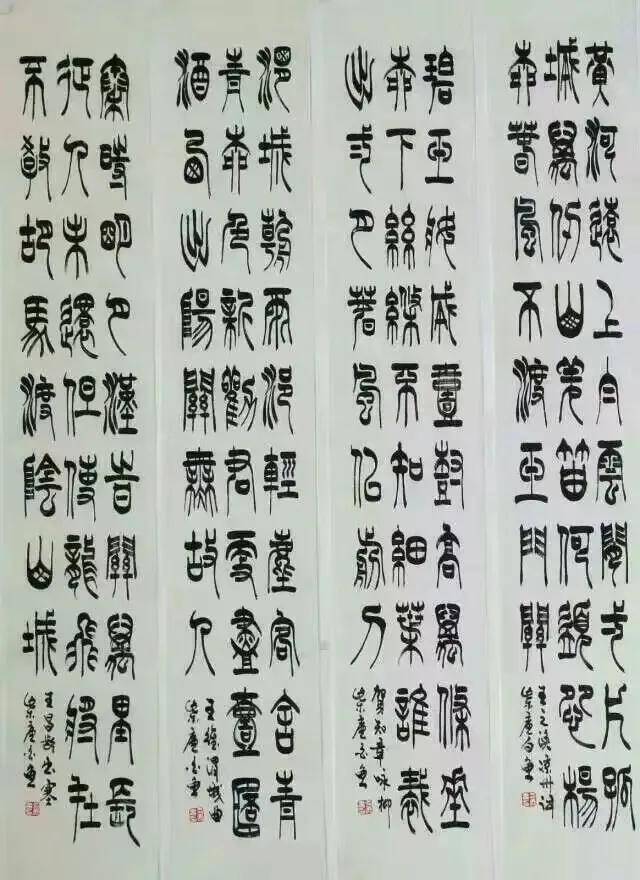 黃河遠上白雲間弌片孤
城萬仞山羌笛何須怨楊
柳春風不渡玉門關
王之渙涼州詞
碧玉妝成壹樹高萬條垂
柳下絲絛不知細葉誰裁
出弍月春風似剪刀
賀知章咏柳
渭城朝雨浥輕塵客舍青
青柳色新勸君更盡壹杯
酒西出陽關無故人
王維渭城曲
秦時明月漢旹關萬里長
征人未還但使龍飛將在
不教胡馬渡陰山城
王昌齡出塞